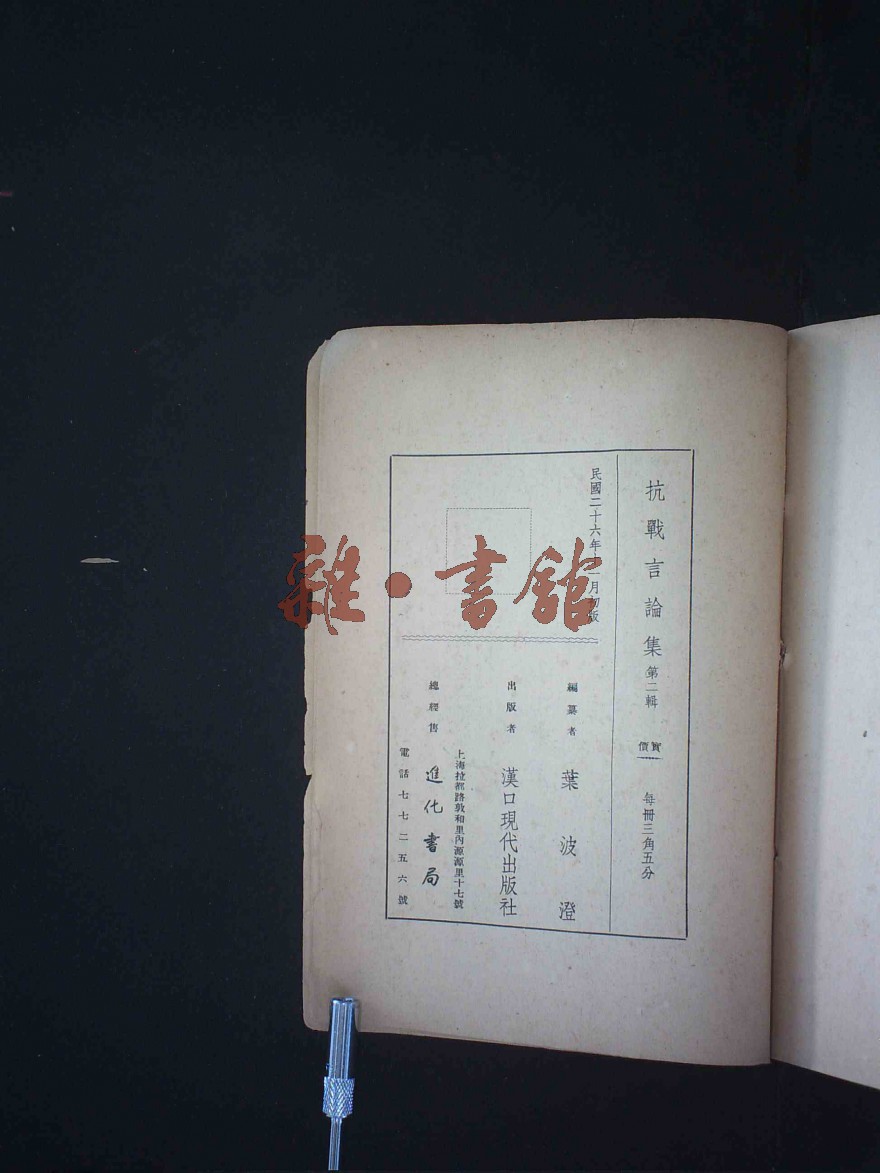 抗戰言論集 第二輯 實價 每冊三角五分
民國二十六年十一月初版
編纂者 葉波澄
出版者 漢口現代出版社
上海拉都路敦和里內源源里十七號
總經售 進化書局
電話七七二五六號
雜·書館